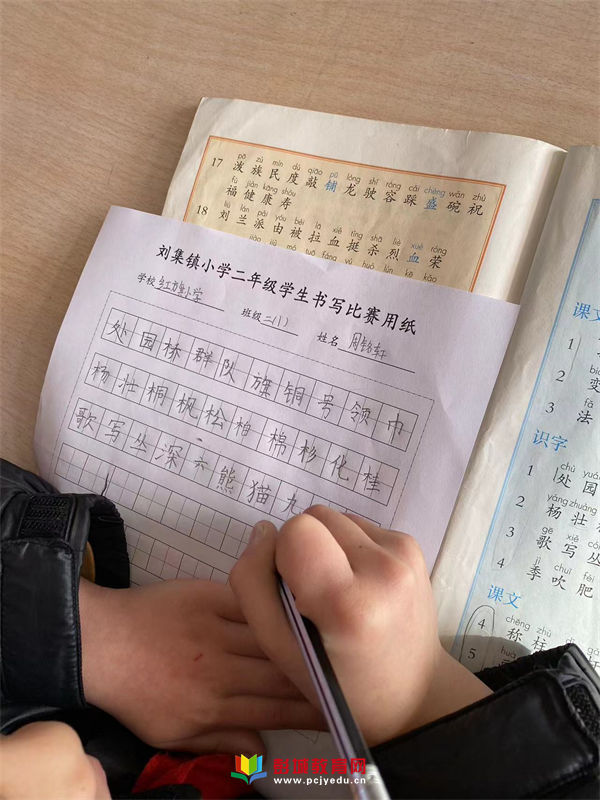 17
pō zú mín dù qiāo pū lóng shǐ róng cǎi chéng wǎn zhù
泼 族 民 度 敲 铺 龙 驶 容 踩 盛 碗 祝
fú jiàn kāng shòu
福 健 康 寿
18
liú lán pài yóu bèi lā xiě tǐng shā liè xuè róng
刘 兰 派 由 被 拉 血 挺 杀 烈 血 荣
刘集镇小学二年级学生书写比赛用纸
学校 小学
班级 二(1)
姓名 周
处 园 桥 群 队 旗 铜 号 领 巾
杨 壮 桐 枫 松 柏 棉 杉 化 桂
歌 写 丛 深 六 熊 猫 九
课文
1
2 变
3 法
识字
1 处 园
2 杨 壮
3 歌 写 丛
4 季 吹 肥
课文
4 称 柱
5
创城教育网
www.pcjyedu.cn